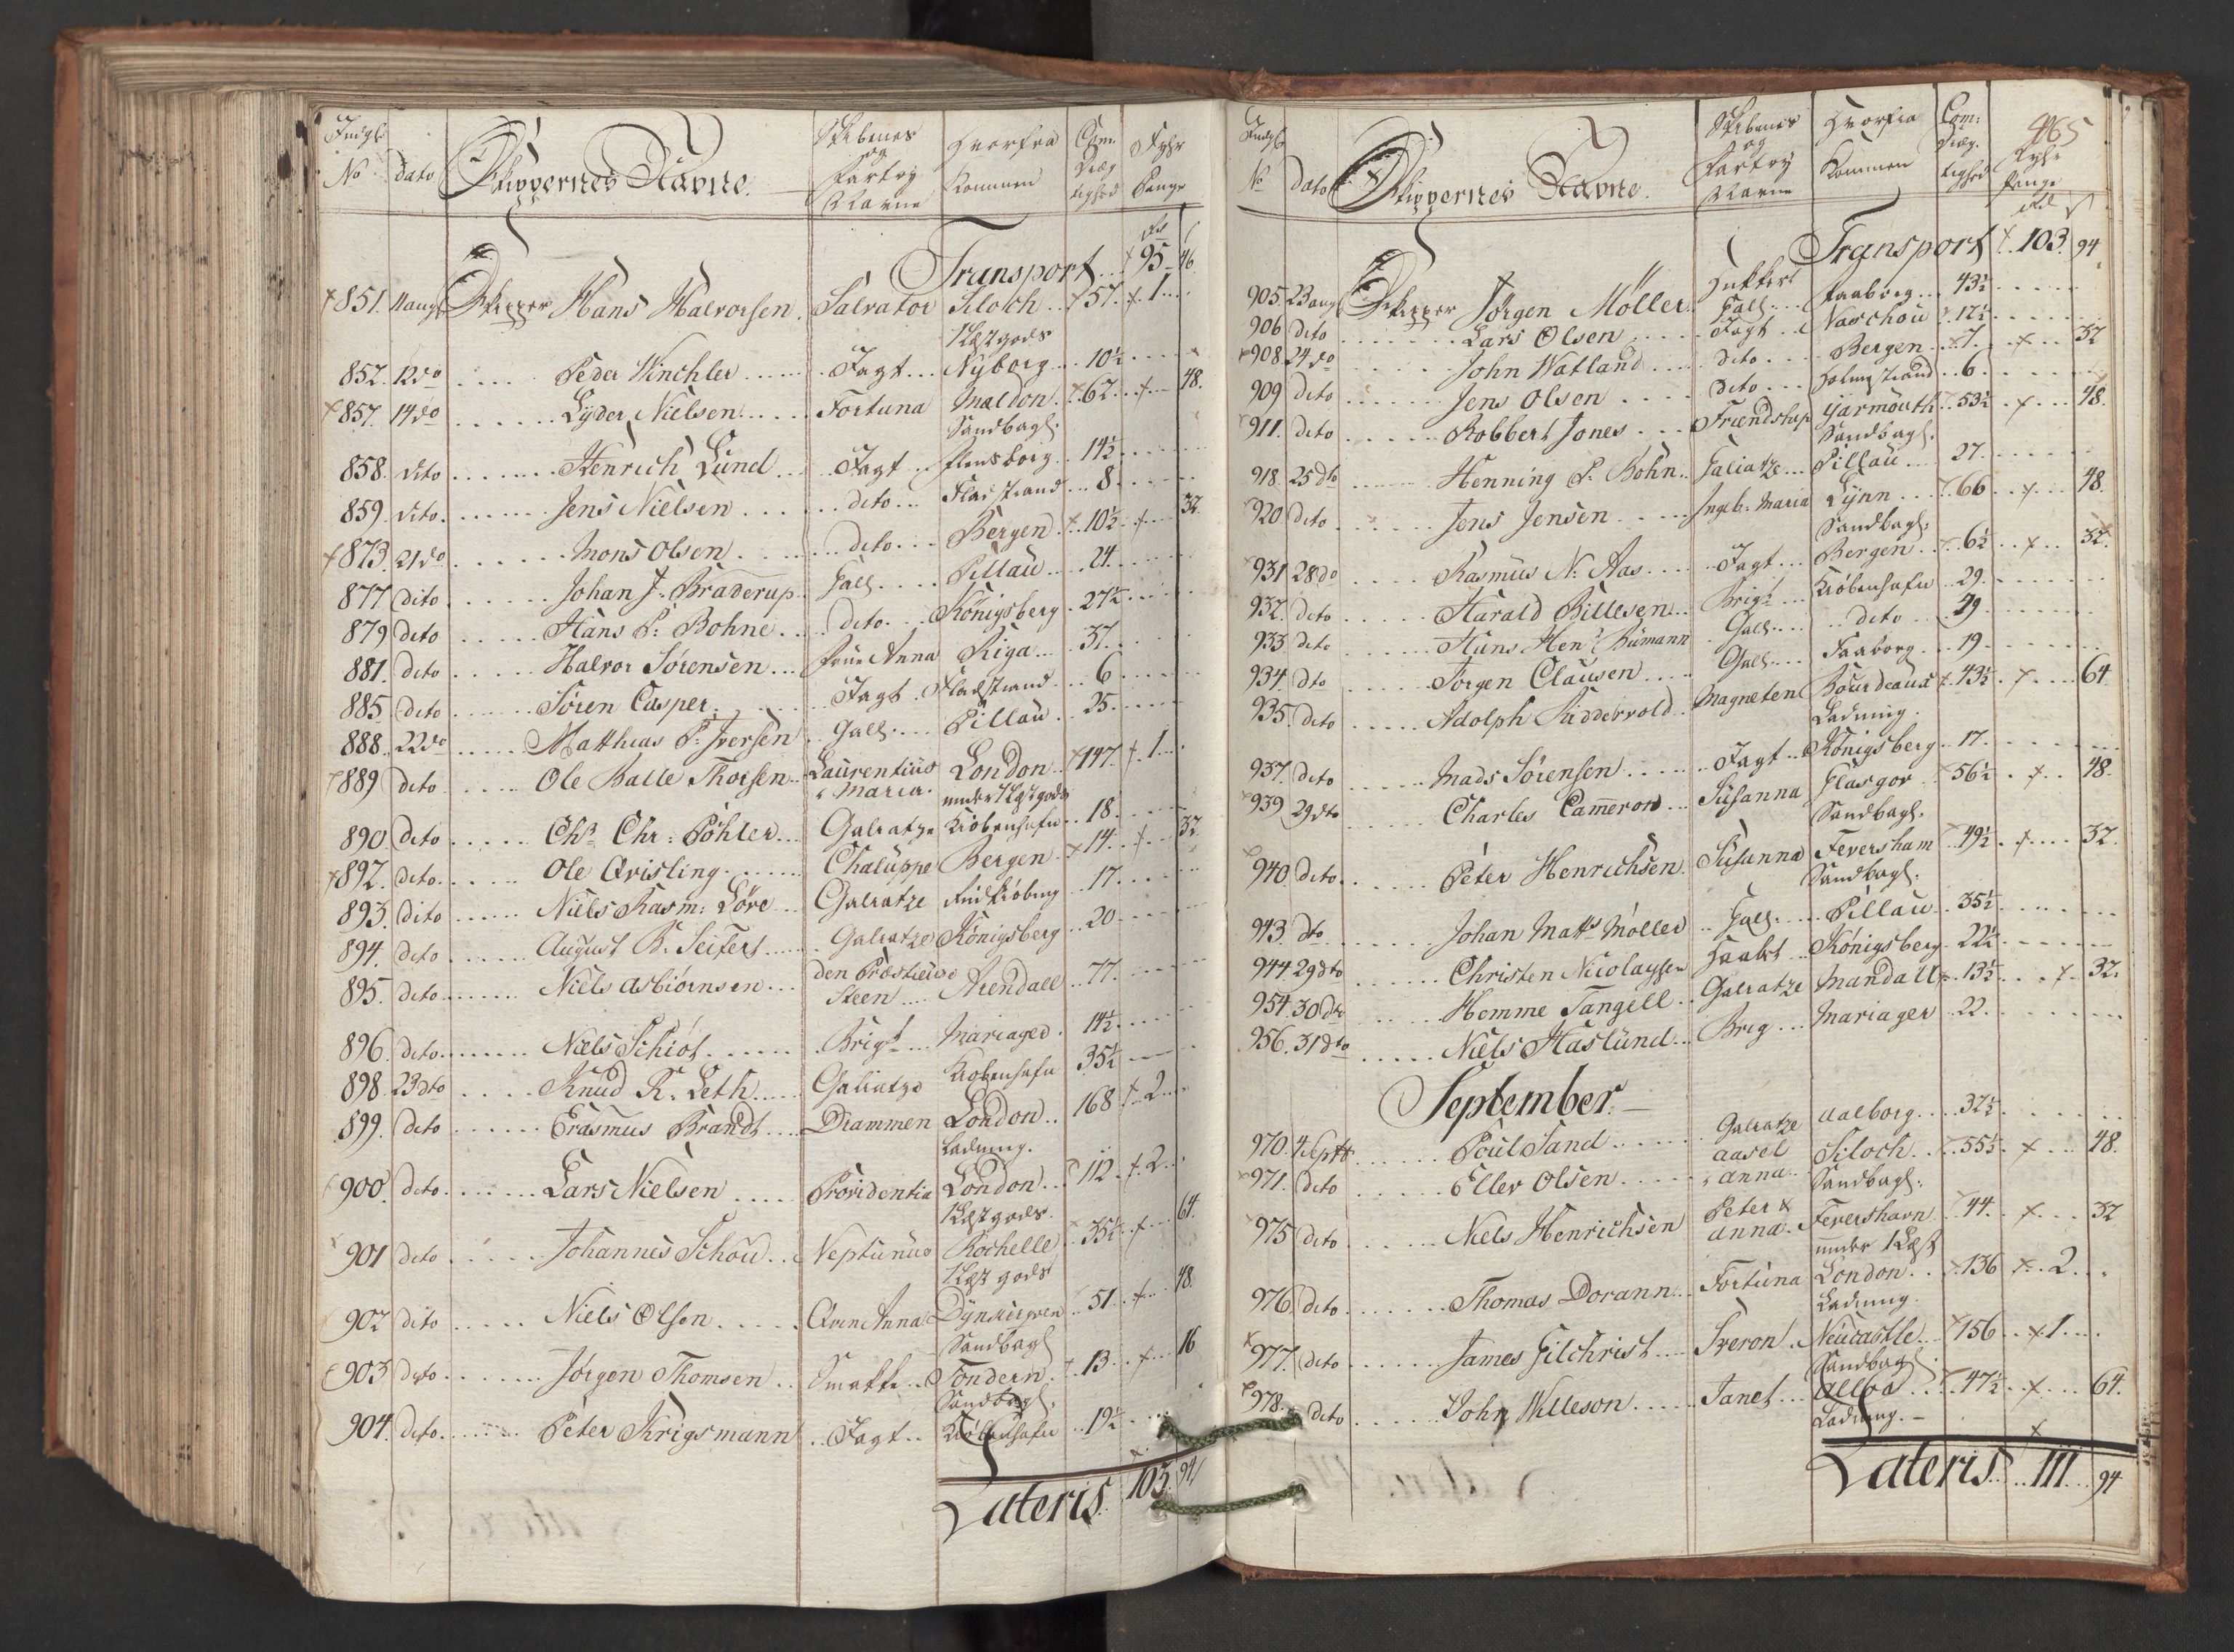 Indgl: No dato Skippernes Navne. Skibenes og Fartøy Navne Hvorfra Kommen Com: Dræg tighed Fyhr Penge
Transport 95 46
851. 11 aug Skipper Hans Halvorsen. Salvator Siloch 57. 1
1 Læst gods
852. 12 do Peder Winchler Jagt Nyborg 10½
857. 14 do Lyder Nielsen Fortuna Maldon 62 48.
Sandbagl.
858. dito Henrich Lund Jagt Flensborg 14½
859. dito. Jens Nielsen dito Fladstrand 8
873. 21 do Mons Olsen dito Bergen 10½ 32.
877 dito Johan J. Braderup Gall. Pillau 24.
879 dito Hans P: Bohne dito Königsberg 27½
881. dito Halvor Sörensen Frue Anna Riga 37.
885 dito Sören Casper Jagt Fladstrand 6
888. 22 do Matthias P. Iversen Gall. Pillau 25.
889 dito Ole Balle Thorsen Laurentius London 147. 1
Maria. under 1 Læst gods
890 dito Chr. Chr: Pöhler Galeatze Kiöbenhafn 18
892. dito. Ole Qvisling Chaluppe Bergen 14 32
893. dito Niels Rasm: Löve Galeatze Rudkiöbing 17.
894. dito August B. Seifert Galeatze Königsberg 20
895. dito Niels Asbiörnsen den Præstieuse Arendall 77.
Steen
896. dito Niels Schiöt Brigt Mariager 14½
898. 23 dto Knud R. Leth Galeatze Kiobenhafn 35½
899. dito Erasmus Brandt Drammen London 168 2
Ladning.
900 dito Lars Nielsen Providentia London 112 2
1 Læst gods
901 dito Johannes Schou Neptunus Rochelle 35½ 64.
1 Læst gods
902 dito Niels Olsen Qven Anna Dynkirgen 51 48
Sandbagl
903 dito Jörgen Thomsen Smakke Tondern 13 16
Sandbagl.
904. dito. Peter Krigsmann Jagt Kiöbenhafn 19½
Lateris. 103. 94
465
Indgl No Dato Skippernes Navne. Skibenes og Fartøy Navne Hvorfra Kommen Com: Dræg. tighed Fyhr Penge
Transport 103. 94
905. 23 aug Skipper Jörgen Möller Hukkert Faaborg 43½
Gall.
906 dito Lars Olsen Jagt Naschou 12½
908 24 do John Watland dito Bergen 7 32
909 dito Jens Olsen dito Holmestrand 6
911. dito Robbert Jones Frændship Yarmouth 53½ 48.
Sandbagl.
918. 25 dto Henning P. Bohn Galiatze Pillau 27.
920 dito Jens Jensen Ingeb: Maria Lynn 66 48.
Sandbagl:
931 28 do Rasmus N: Aas Jagt Bergen 6½ 32.
932. dito Harald Billesen Brigt Kiöbenhafn 29.
933 dito Hans Hen: Bumann Gall. dito 29
934. dto Jörgen Clausen Gall. Faaborg 19
935. dito Adolph Riddervold Magneten Bourdeaux 43½ 64
Ladning.
937. dito Mads Sörensen Jagt Königsberg 17.
939 29 dto Charles Cameron Susanna Glasgov 56½ 48.
Sandbagl.
940 dito Peter Henrichsen Susanna Feversham 49½ 32.
Sandbagl.
943. dto Johan Matts Möller Gall. Pillau 35½
944 29 dto Christen Nicolaysen Königsberg 22½
954. 30 dto Hemme Tangell Galeatze Mandall 13½ 32.
956. 31 dto Niels Haslund Brig Mariager 22.
September.
970. 4 Septbr Poul Sand Galeatze Aalborg 32½
971. dito Eller Olsen Aasel Siloch 55½ 48.
anna Sandbagl.
975 dito Niels Henrichsen Peter & Fevershavn 44. 32
anna under 1 Læst
976. dito Thomas Dorann Fortuna London 136 2
Ladning.
977. dito James Gilchrist Sveron Neucastle 156 1
Sandbagl
978. dito John Willeson Janet Alloa 47½ 64.
Ladning.
Lateris 111 94